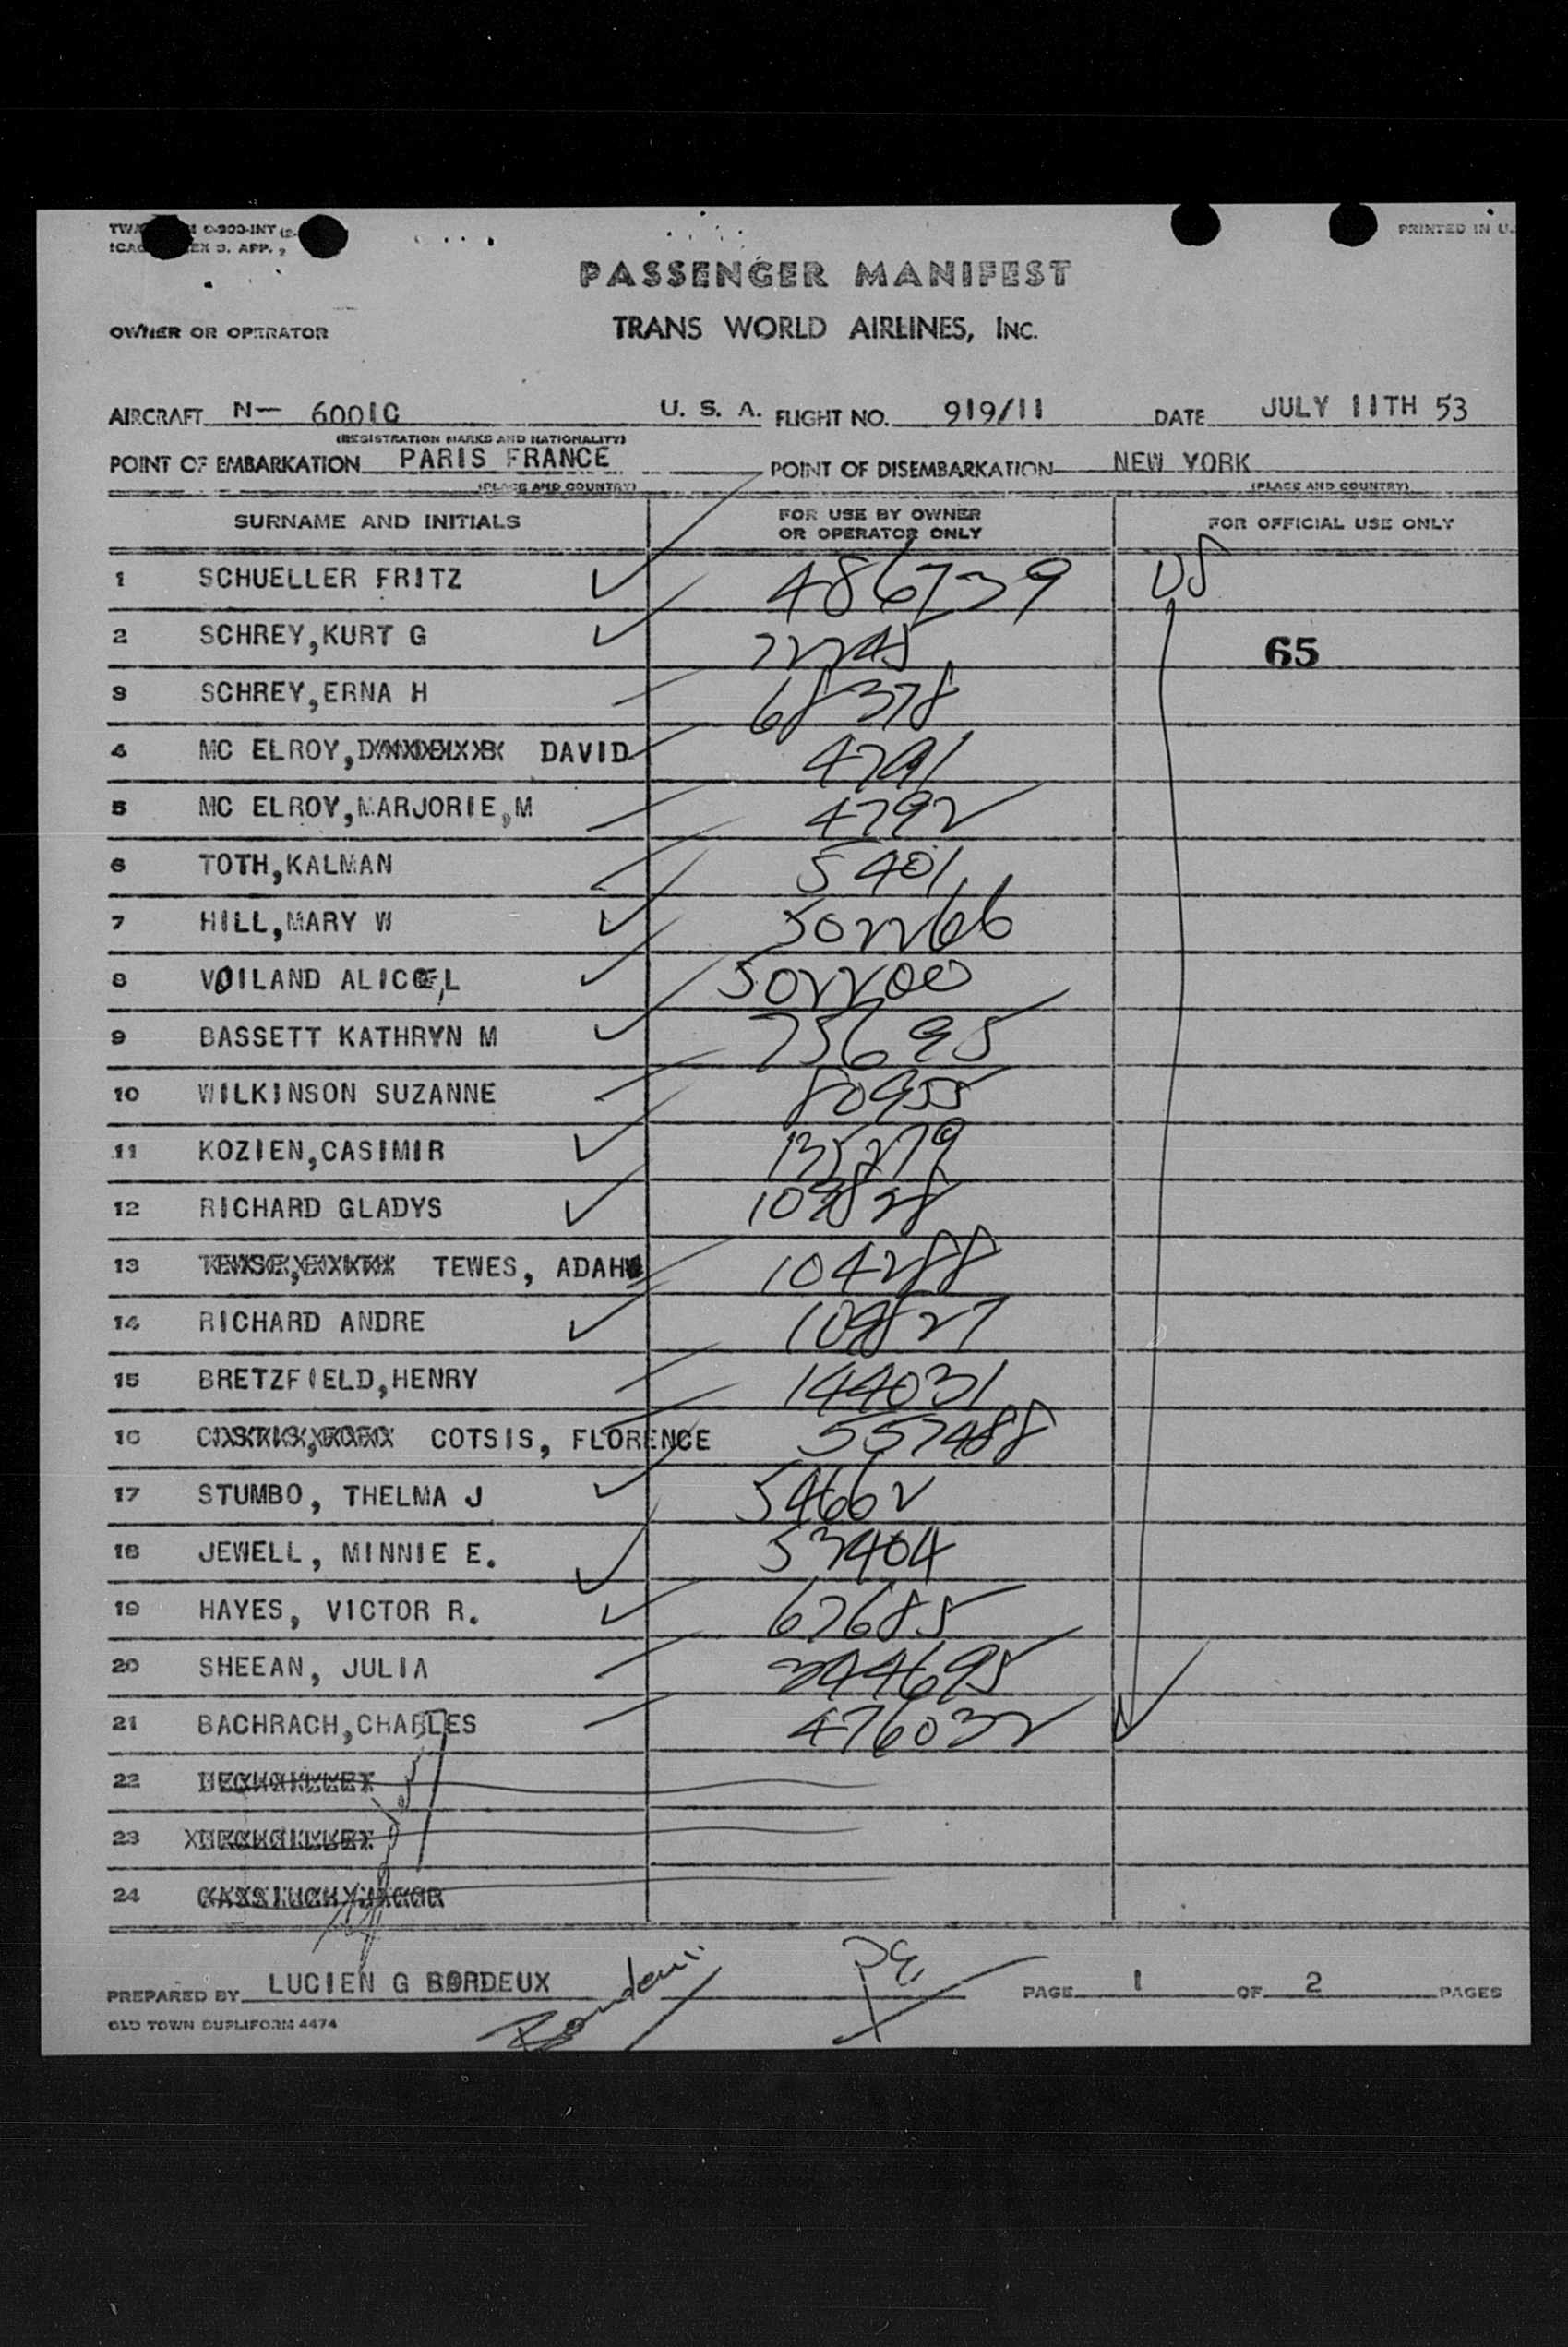 PRINTED IN U.
PASSENGER MANIFEST
OWNER OR OPERATOR TRANS WORLD AIRLINES, INC.
AIRCRAFT N— 6001C U. S. A. FLIGHT NO. 919/11 DATE JULY 11TH 53
(REGISTRATION MARKS AND NATIONALITY)
POINT OF EMBARKATION PARIS FRANCE POINT OF DISEMBARKATION NEW YORK
(PLACE AND COUNTRY) (PLACE AND COUNTRY)
SURNAME AND INITIALS FOR USE BY OWNER OR OPERATOR ONLY FOR OFFICIAL USE ONLY
1 SCHUELLER FRITZ 486739 US
2 SCHREY,KURT G 72245 65
3 SCHREY,ERNA H 68378
4 MC ELROY, DAVID 4791
5 MC ELROY,MARJORIE,M 4792
6 TOTH,KALMAN 5401
7 HILL,MARY W 502266
8 VOILAND ALICE,L 502200
9 BASSETT KATHRYN M 75695
10 WILKINSON SUZANNE 80955
11 KOZIEN,CASIMIR 135279
12 RICHARD GLADYS
13 TEWES, ADAH 104288
14 RICHARD ANDRE
15 BRETZFIELD,HENRY 144031
16 COTSIS, FLORENCE 557488
17 STUMBO, THELMA J 54662
18 JEWELL, MINNIE E. 53404
19 HAYES, VICTOR R. 67685
20 SHEEAN, JULIA 344695
21 BACHRACH,CHARLES 476032
22
23
24
PREPARED BY LUCIEN G BORDEUX PAGE 1 OF 2 PAGES
OLD TOWN DUPLIFORM 4474